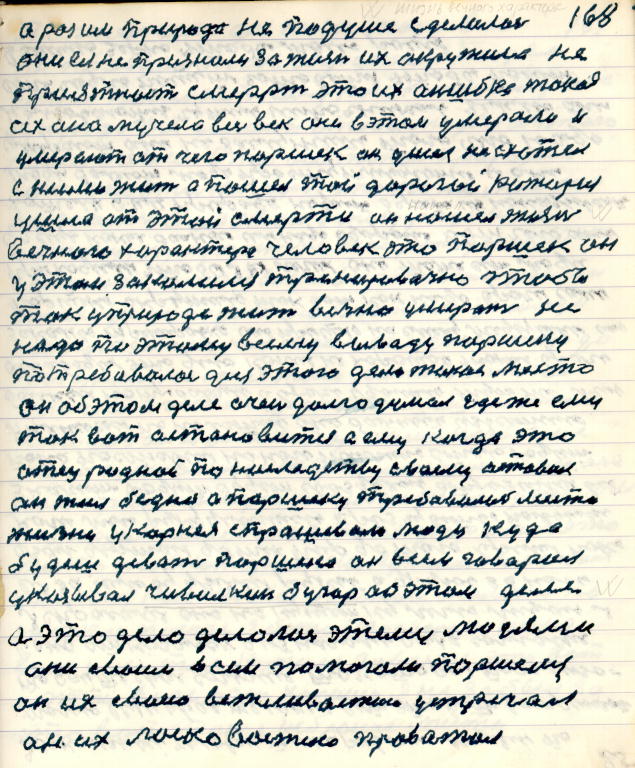 жизнь вечного характера
168
а раз им природа не подуше сделалас
они ее не признали за жизн их окружила не
приятност смеррт это их ошибка такая
их она мучела вес век они в этом умерали и
умерают от чего паршек он ушел не схотел
с ними жит а пошел той дорогой которая
ушла от этой смерти он нашел жизн
вечного характера человек это паршек он
у этом закалился тренировачно чтобы
так у природе жит вечно умират не
надо по этому всему выводу паршеку
потребавалос для этого дела такое место
он об этом деле очен долго думал где же ему
так вот астановится а ему когда это
отец родной по наследству своему оставил
он жил бедно а паршеку требавалос место
жизни у Корнея спрашевали люди куда
будеш деват паршека он всем говарил
указывал чивилкин бугор об этом деле
а это дело делалос этеми людями
они своим всем помогали паршеку
он их своею вежливастю устречал
он их ласково вежливо провожал